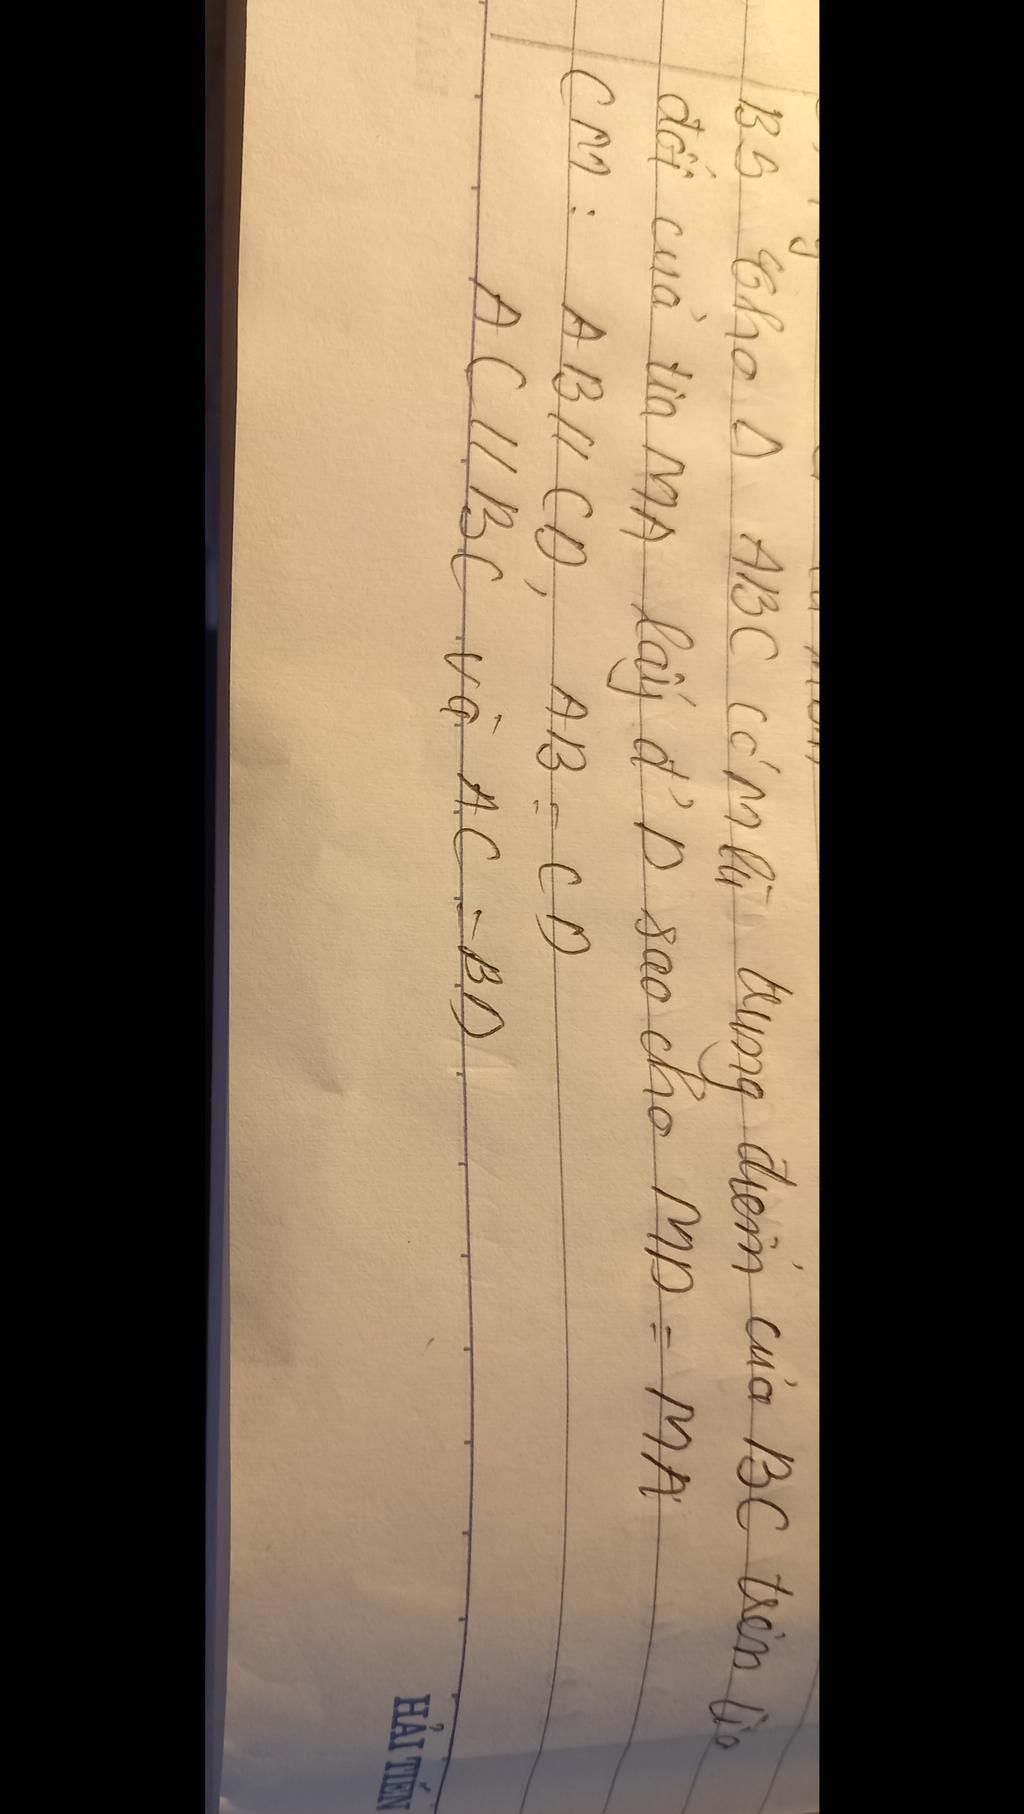 B5 Cho Δ ABC có M là trung điểm của BC trên tia
đối của tia MA lấy đ' D sao cho MD = MA
CM : AB // CD, AB = CD
AC // BC và AC = BD
HẢI TIẾN